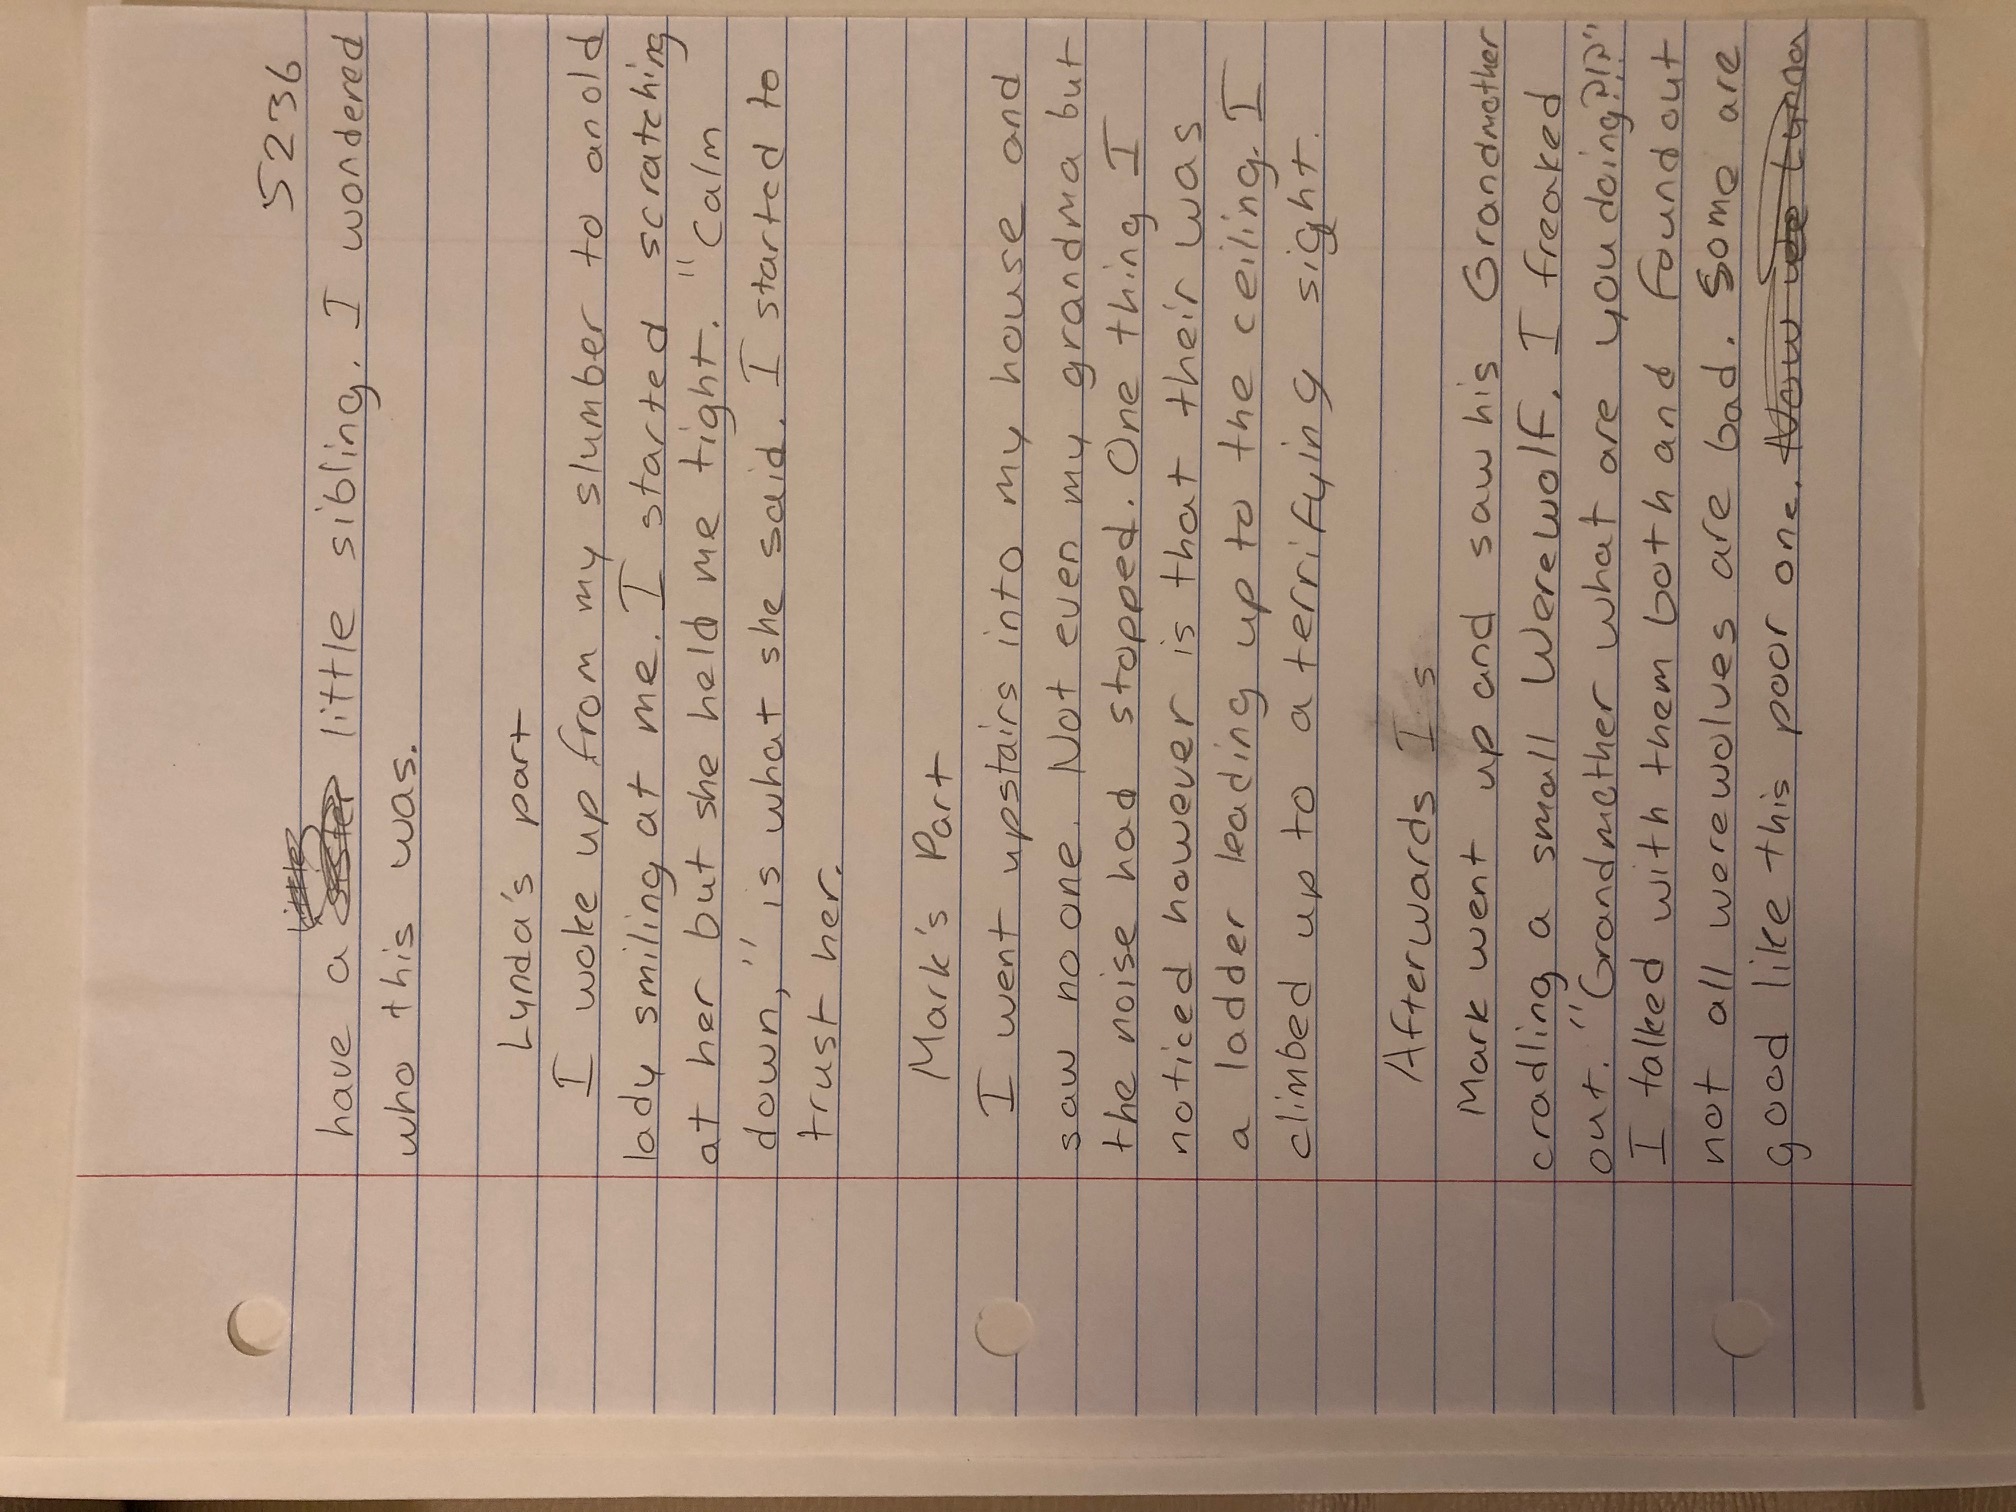 5236
little
have a sister little sibling. I wondered
who this was.
Lynda's part
I woke up from my slumber to an old
lady smiling at me. I started scratching
at her but she held me tight. "Calm
down," is what she said. I started to
trust her.
Mark's Part
I went upstairs into my house and
saw no one. Not even my grandma but
the noise had stopped. One thing I
noticed however is that their was
a ladder leading up to the ceiling. I
climbed up to a terrifying sight.
Afterwards I s
Mark went up and saw his Grandmother
cradling a small Werewolf. I freaked
out. "Grandmother what are you doing?!?"
I talked with them both and found out
not all werewolves are bad. Some are
good like this poor one. Now we Lynda